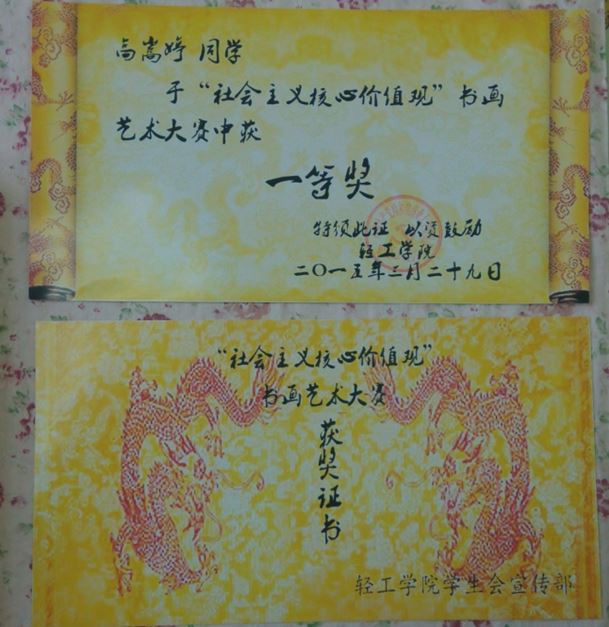 高嵩婷 同学
于“社会主义核心价值观”书画
艺术大赛中获
一等奖
特颁此证 以资鼓励
轻工学院
二〇一五年三月二十九日
“社会主义核心价值观”
书画艺术大赛
获奖证书
轻工学院学生会宣传部